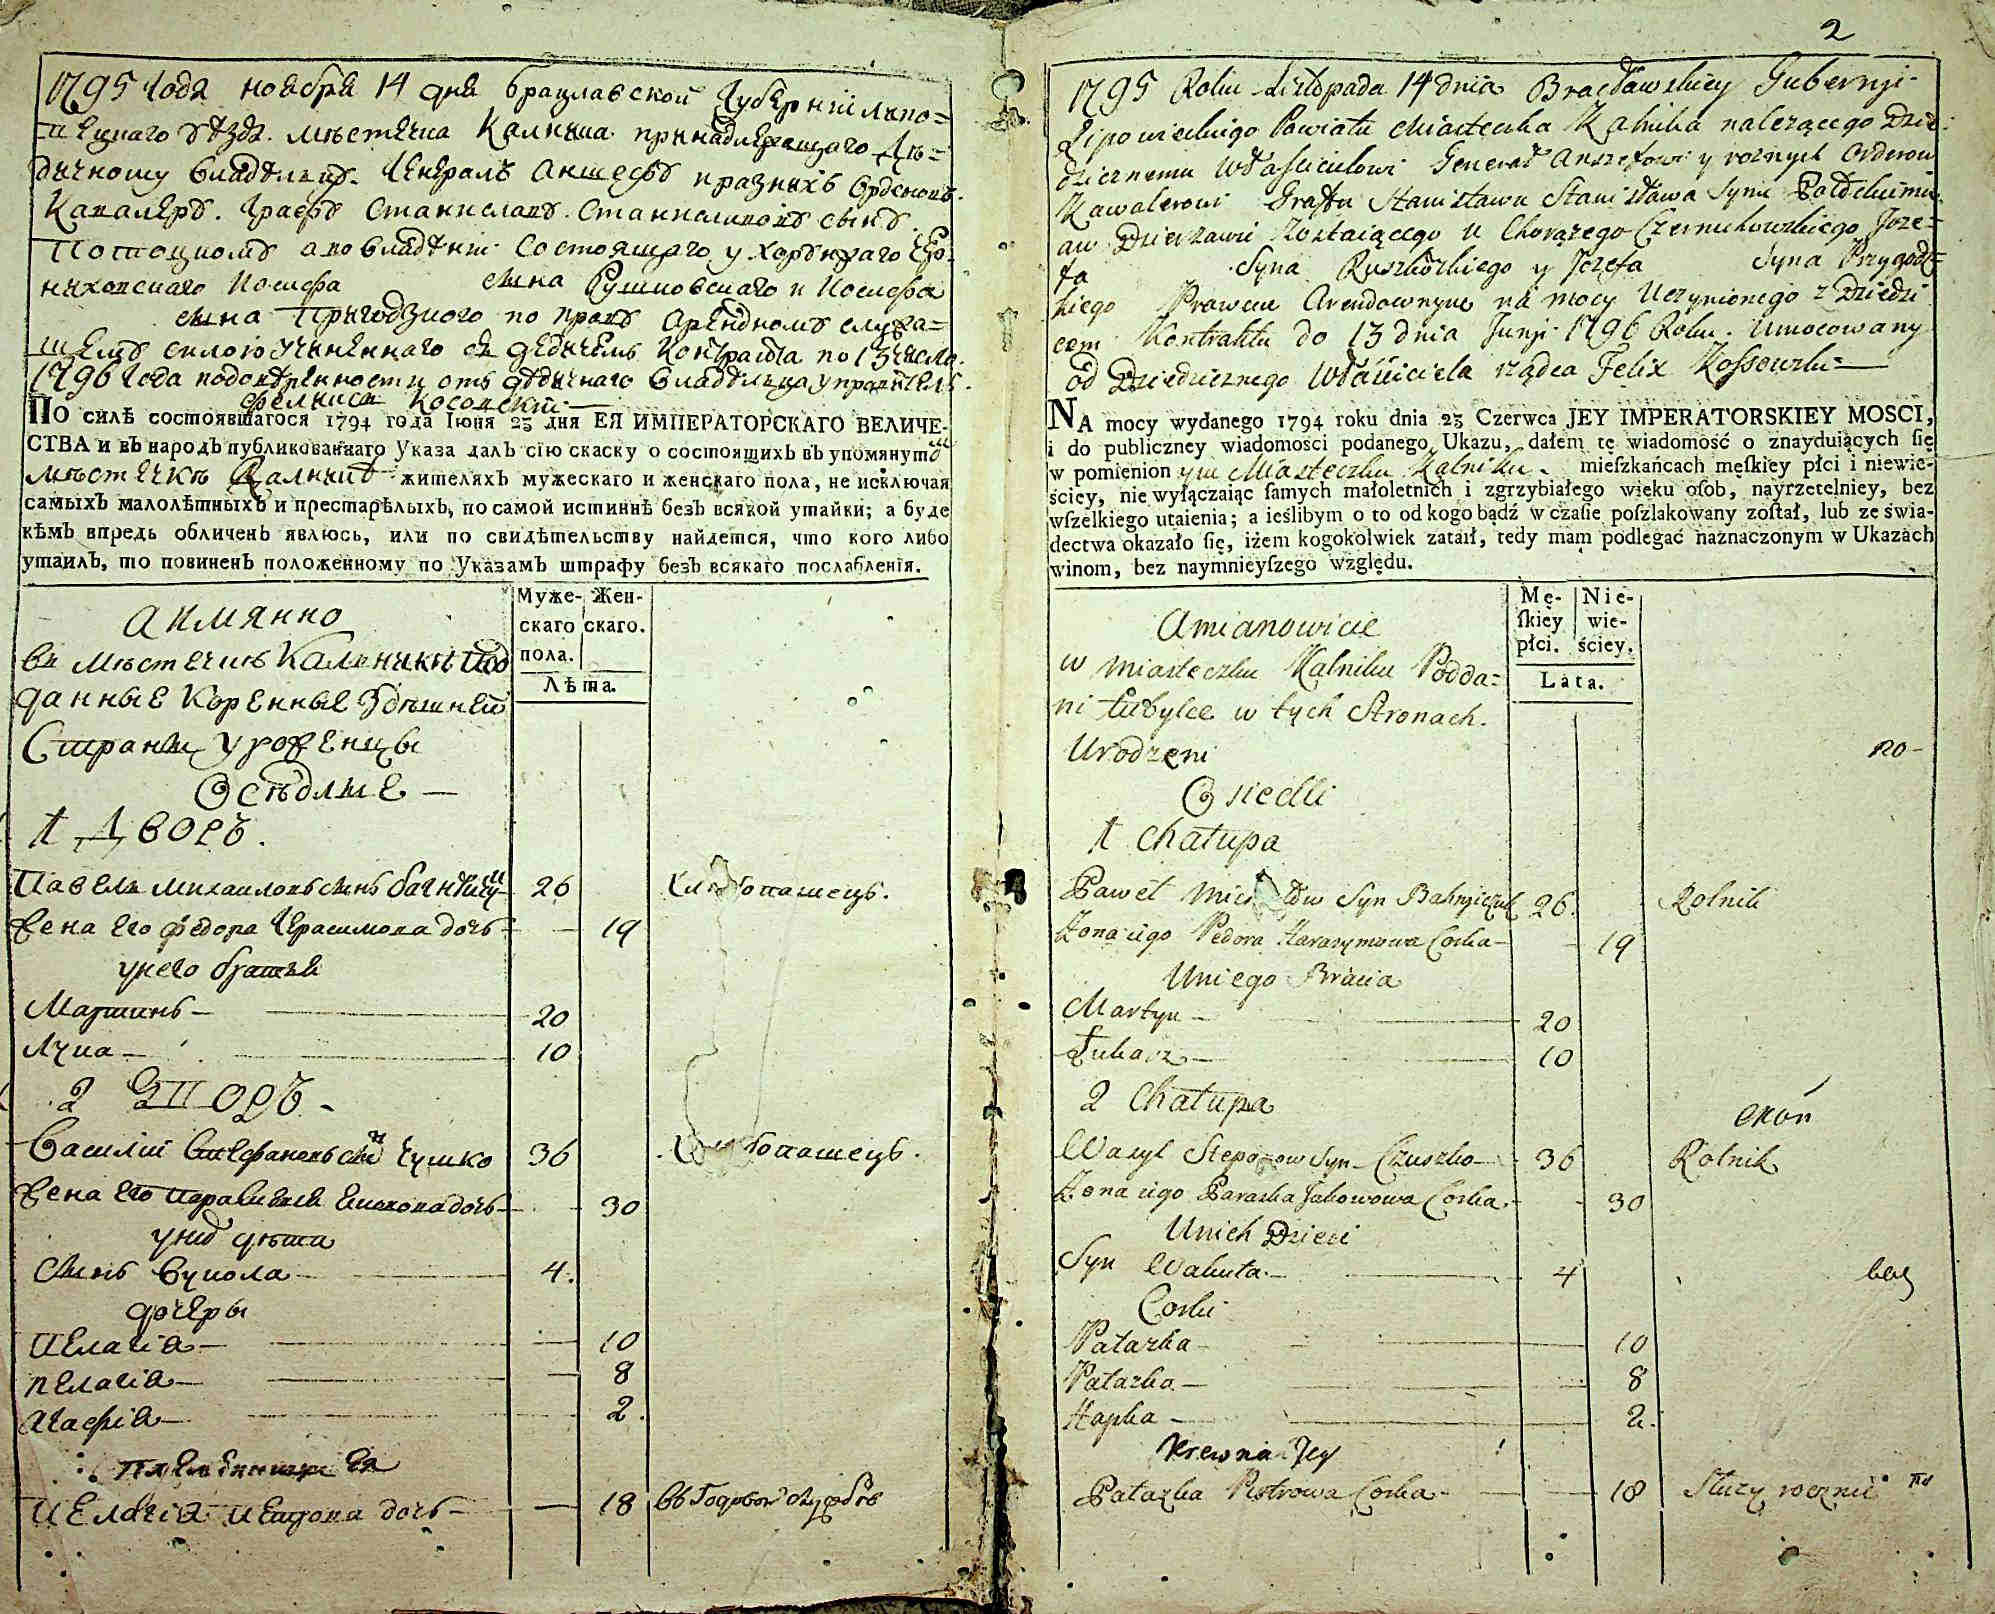 1795 Года ноября 14 дня Брацлавской Губернiи Липо=
вецкаго уѣзда. Мѣстечка Калника принадлежащаго Дѣ=
дичному владѣльцу. Генералъ Аншефъ и разныхъ Орденовъ
Кавалеръ. Графъ Станиславъ Станиславовъ сынъ
Потоцкомъ а во владѣнiи состоящаго у Хорунжаго Чер-
нихов­скаго Иосифа сына Рушковскаго и Иосифа
сына Пригодзкого по праву Арендномъ
силою учиненнаго съ дедичемъ Контракта по 13 числа
1796 Года подовѣренности отъ дѣдичнаго владѣльца управитель
Феликсъ Косовскiй
ПО силѣ состоявшагося 1794 года Iюня 23 дня ЕЯ ИМПЕРАТОРСКАГО ВЕЛИЧЕ-
СТВА и въ народъ публикованнаго Указа далъ сiю скаску о состоящихъ въ упомянутом
мѣстечкѣ Калникѣ жителяхъ мужескаго и женскаго пола, не исключая
самыхъ малолѣтныхъ и престарѣлыхъ, по самой истиннѣ безъ всякой утайки; а буде
кѣмъ впредь обличенъ явлюсь, или по свидѣтельству найдется, что кого либо
утаилъ, то повиненъ положенному по Указамъ штрафу безъ всякаго послабленiя.
Муже-скаго пола. Жен-скаго.
Лѣта.
А имянно
въ мѣстечкѣ Калникѣ Под
данные коренные здѣшней
Страны уроженцы
Осѣдлые —
1 Дворъ.
Павелъ Михайловъ сынъ 26 Хлѣбопашецъ.
Жена его Федора Герасимова дочь 19
у него братья
Мартинъ — 20
Лука — 10
2 Дворъ —
Василiй Стефановъ сынъ Чушко 36 Хлѣбопашецъ.
Жена его Параскевiя Якимова дочь 30
у них дѣти
Сынъ Вукола — 4.
дочеры
Пелагiя — 10
Пелагiя — 8
Агафiя — 2.
племенница Ея
Пелагiя Петрова дочь — 18 въ Годовой службѣ
2
1795 Roku Listopada 14 dnia Bracławskiey Gubernyi
Lipowieckiego Powiatu Miasteczka Kalnika należącego Dzie-
dzicznemu Właścicielowi Generał Anszefowi y rożnych Orderow
Kawalerowi Grafu Stanisławu Stanisława Syna Potockiemu
aw Dzierżawi zostaiącego u Chorążego Czernichowskiego Joze=
fa Syna Ruszkowskiego y Jozefa Syna Przygodz=
kiego Prawem Arendownym na mocy Uczynionego z Dziedzi
cem Kontraktu do 13 dnia Junji 1796 Roku. Umocowany
od Dziedzicznego Właściciela rządca Felix Kossowski —
NA mocy wydanego 1794 roku dnia 23 Czerwca JEY IMPERATORSKIEY MOSCI,
i do publiczney wiadomości podanego Ukazu, dałem tę wiadomość o znayduiących ſię
w pomienion ym Miasteczku Kalniku. mieſzkańcach męſkiey płci i niewie-
ściey, nie wyłączaiąc ſamych małoletnich i zgrzybiałego wieku oſob, nayrzetelniey, bez
wſzelkiego utaienia; a ieślibym o to od kogo bądź w czaſie poſzlakowany zoſtał, lub ze świa-
dectwa okazało ſię, iżem kogokolwiek zataił, tedy mam podlegać naznaczonym w Ukazach
winom, bez naymnieyſzego względu.
Mę-ſkiey płci. Nie-wie-ściey.
Lata.
Amianowicie
w miasteczku Kalniku Podda=
ni tubylce w tych Stronach.
Urodzeni
Osiedli
1 Chałupa
Paweł Syn 26. Rolnik
Żona iego Fedora Harasymowa Corka — 19
Uniego Bracia
Martyn — 20
Łukasz — 10
2 Chałupa
Wasyl Steponow Syn Czuszko — 36 Rolnik
Żona iego Paraska Jakowowa Corka — 30
Unich Dzieci
Syn Wakuła — 4
Corki
Pałazka — 10
Pałazka — 8
Hapka — 2.
Krewna Jey
Pałazka Piotrowa Corka — 18 Służy rocznie